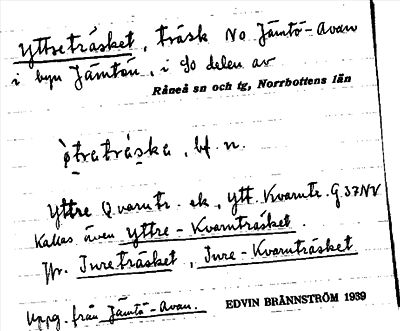 Yttreträsket, träsk NO Jämtö-Avan
i byn Jämtön, i SO delen av
Råneå sn och tg, Norrbottens län
ø̀traträska, bf. n.
Yttre Qvarntr. ek, Ytt. Kvarntr. G 37NV
Kallas även Yttre-Kvarnträsket.
Jfr. Inreträsket, Inre-Kvarnträsket
Uppg. från Jämtö-Avan.
EDVIN BRÄNNSTRÖM 1939